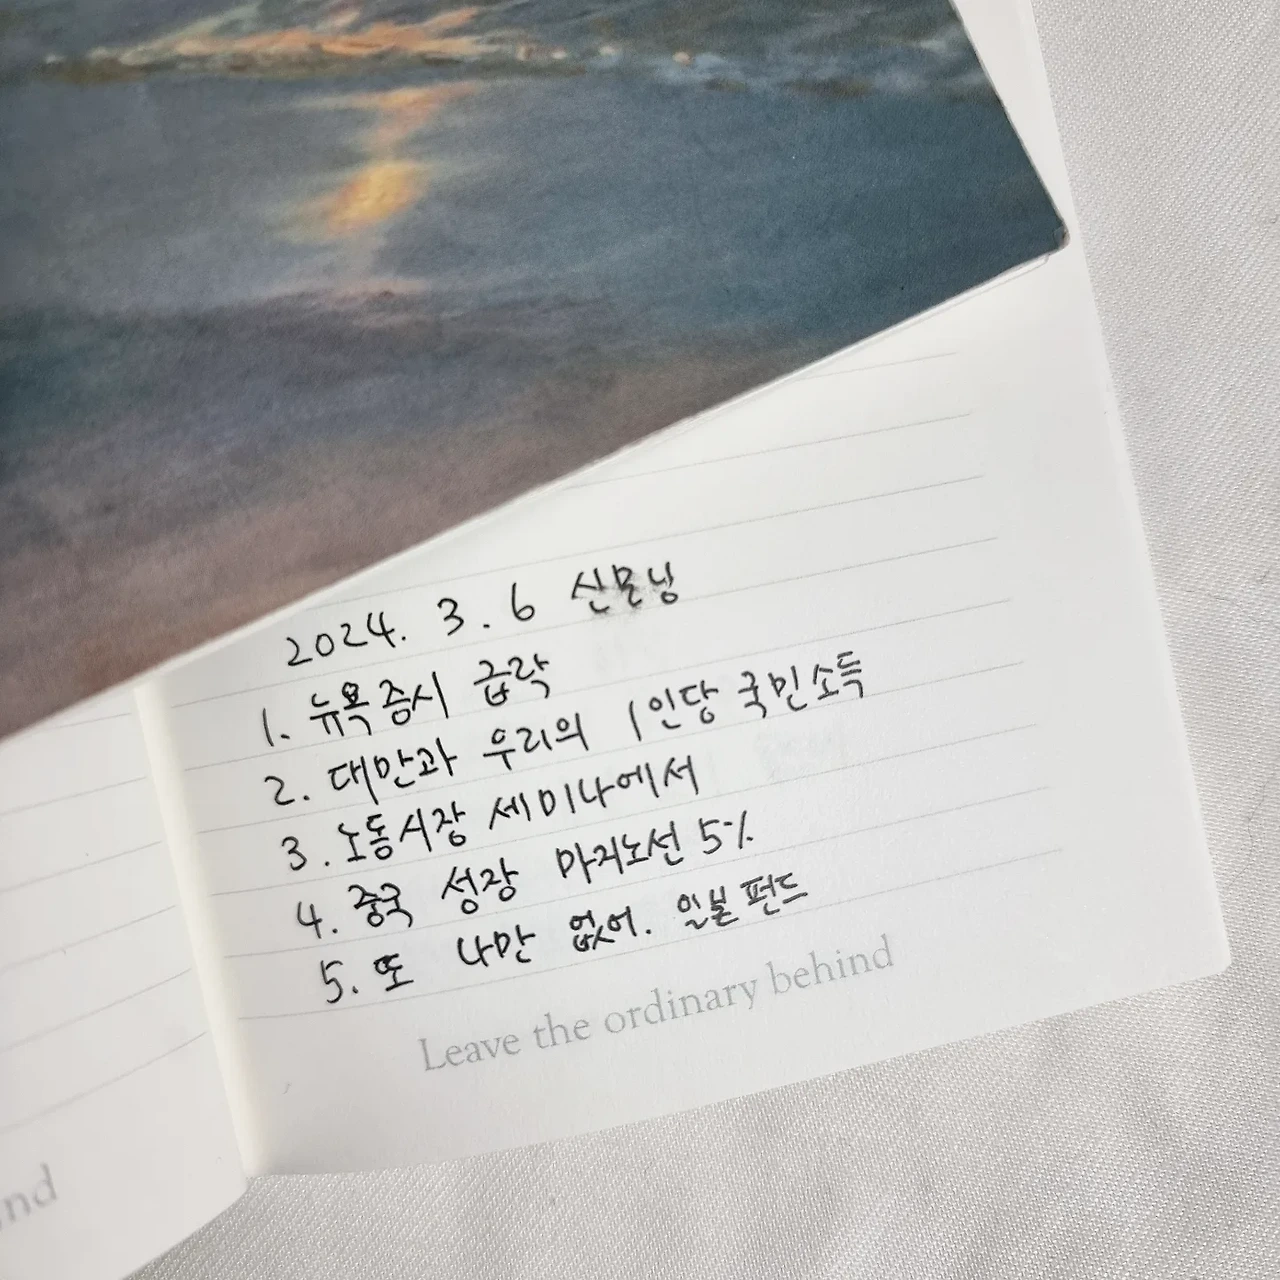 2024. 3. 6 신모닝
1. 뉴욕증시 급락
2. 대만과 우리의 1인당 국민소득
3. 노동시장 세미나에서
4. 중국 성장 마지노선 5%
5. 또 나만 없어. 일본펀드
Leave the ordinary behind
ind